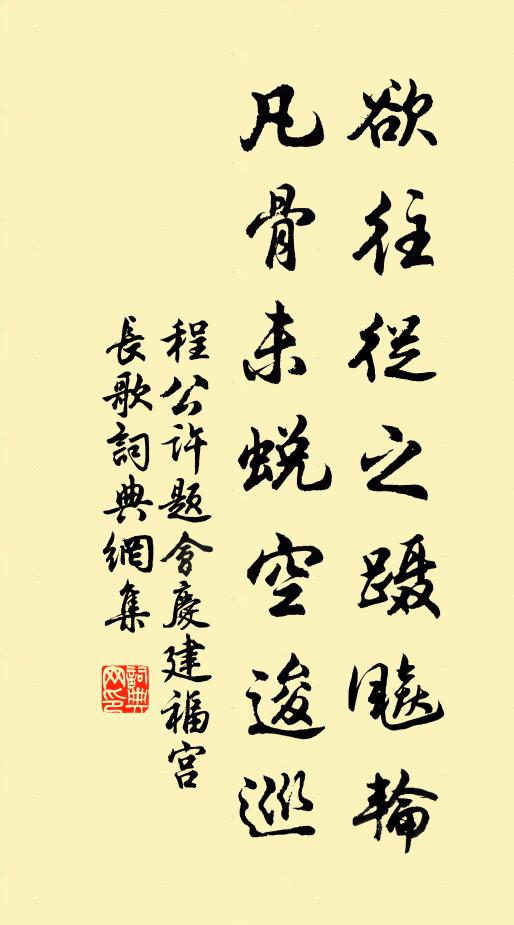 欲往從之躡飈輪
凡骨未蜕空逡巡
程公许题會慶建福宫
長歌詞典網集
詞典网印